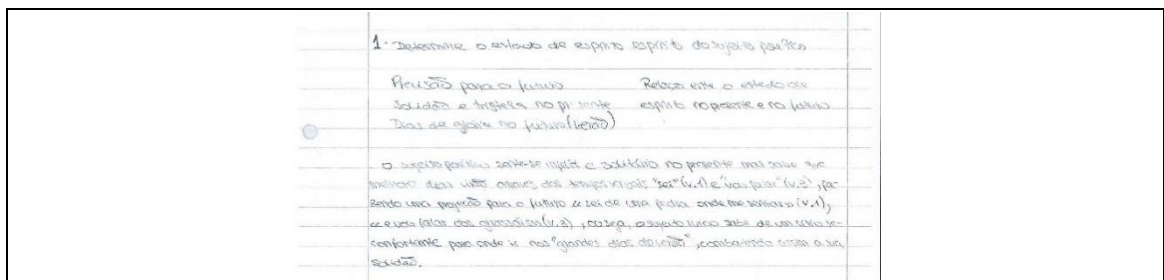 1. Determine o estado de espírito espírito do sujeito poético
Previsão para o futuro Relação entre o estado de
Solidão e tristeza no presente espírito no presente e no futuro
Dias de glória no futuro (verão)
O sujeito poético sente-se infeliz e solitário no presente mas sabe que
melhores dias virão através dos tempos verbais "sei" (v.1) e "vou falar" (v.3), fa-
zendo uma projeção para o futuro "sei de uma pedra onde me sentar" (v.1),
e "vou falar dos girassóis" (v.3), ou seja, o sujeito lírico sabe de um sítio
confortante para onde ir nos "grandes dias de verão", combatendo assim a sua
solidão.